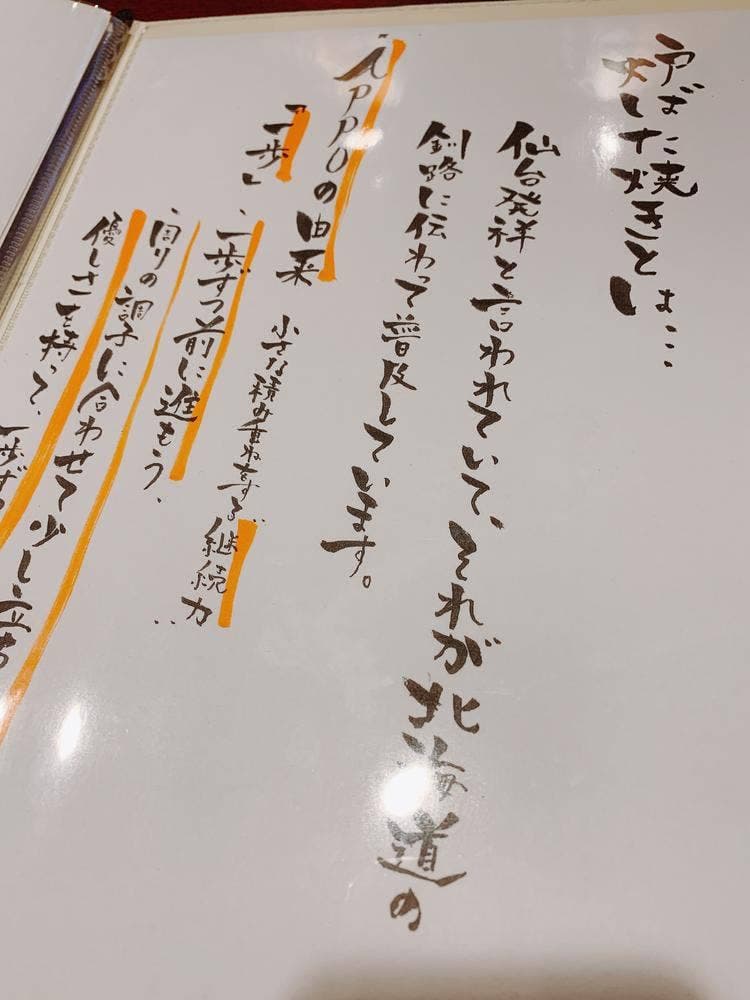 炉ばた焼きとは…
仙台発祥と言われていて、それが北海道の
釧路に伝わって普及しています。
APPOの由来
「一歩」
小さな積み重ねをする"継続力"
一歩ずつ前に進もう、
周りの調子に合わせて少し立ち
優しさを持って、一歩ず